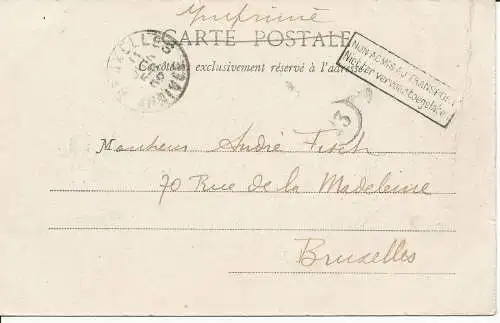 Imprimé
CARTE POSTALE
Ce côté est exclusivement réservé à l'adresse
BRUXELLES
NON ADMIS AU TRANSPORT
Niet ter vervoer toegelaten
13
Monsieur André Fisch
70 Rue de la Madeleine
Bruxelles